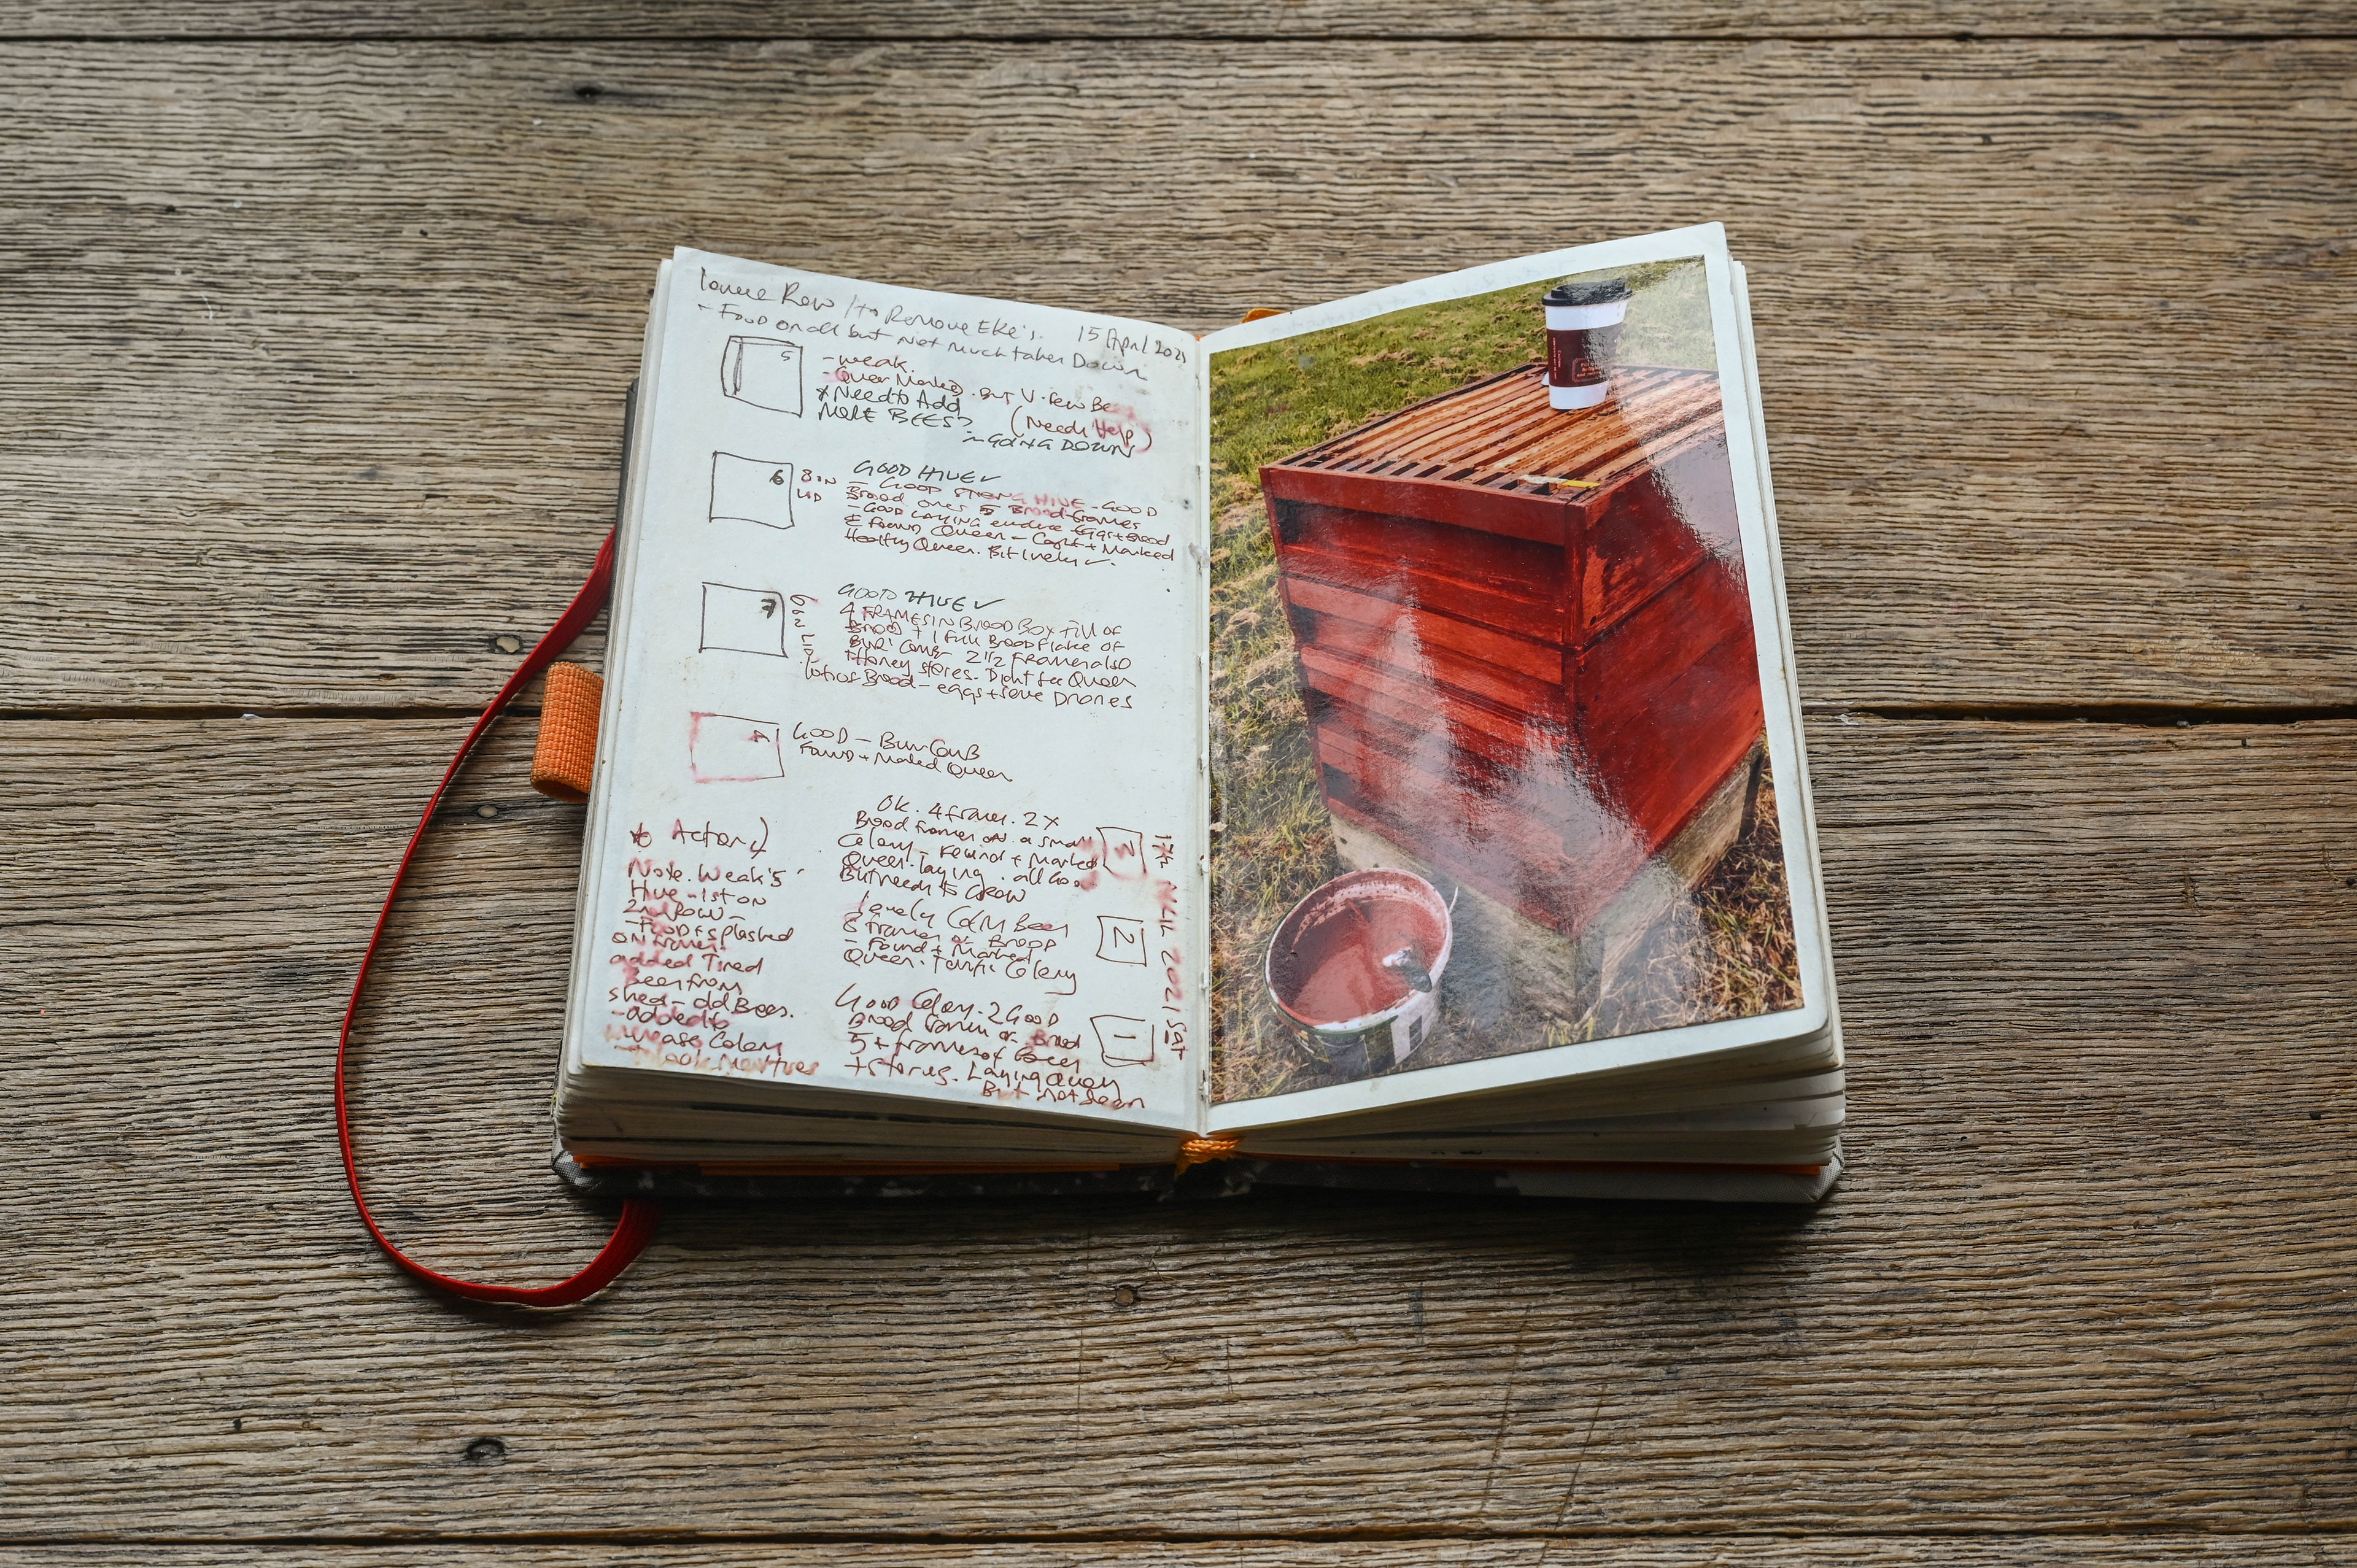 Row / to Remove Eke's. 15 April 2021
- Food on all but not much taken Down
5
- weak.
- Queen Marked. But V. few Bees
* Need to Add (Needs Help)
MORE BEES?
- GOING DOWN
6
GOOD HIVE ✓
- GOOD STRONG HIVE - GOOD
Brood over 5 Brood frames
- GOOD LAYING Eggs + Brood
& Found Queen - Caught + Marked
Healthy Queen. Bit lively ✓.
7
GOOD HIVE ✓
4 FRAMES IN BROOD BOX full of
Brood + 1 full Brood flake of
Burr Comb 2 1/2 Frames also
Honey stores. Didnt see Queen
lots of Brood - eggs + some Drones
GOOD - Burr Comb
Found + Marked Queen
* Action
Note. Weak 5
Hive - 1st on
2nd Row -
- Food splashed
on frames.
added Tired
Bees from
shed - old Bees.
- added to
increase Colony
17th 2021 Sat
3
Ok. 4 frames. 2 x
Brood frames a small
Colony - Found + Marked
Queen. laying. all Good
But needs to Grow
2
lovely Calm Bees
frames of Brood
- Found + Marked
Queen. Colony
1
Good Colony. 2 Good
Brood frames of Brood
5 + frames of Bees
+ stores. Laying Queen
But not seen